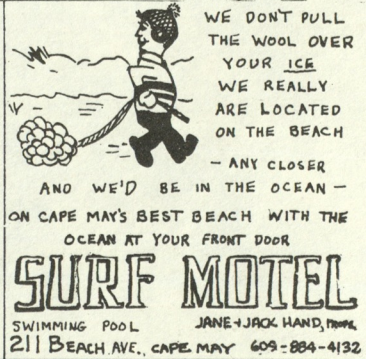 WE DON'T PULL
THE WOOL OVER
YOUR ICE
WE REALLY
ARE LOCATED
ON THE BEACH
- ANY CLOSER
AND WE'D BE IN THE OCEAN -
ON CAPE MAY'S BEST BEACH WITH THE
OCEAN AT YOUR FRONT DOOR
SURF MOTEL
SWIMMING POOL JANE & JACK HAND, PROPS.
211 BEACH AVE., CAPE MAY 609-884-4132